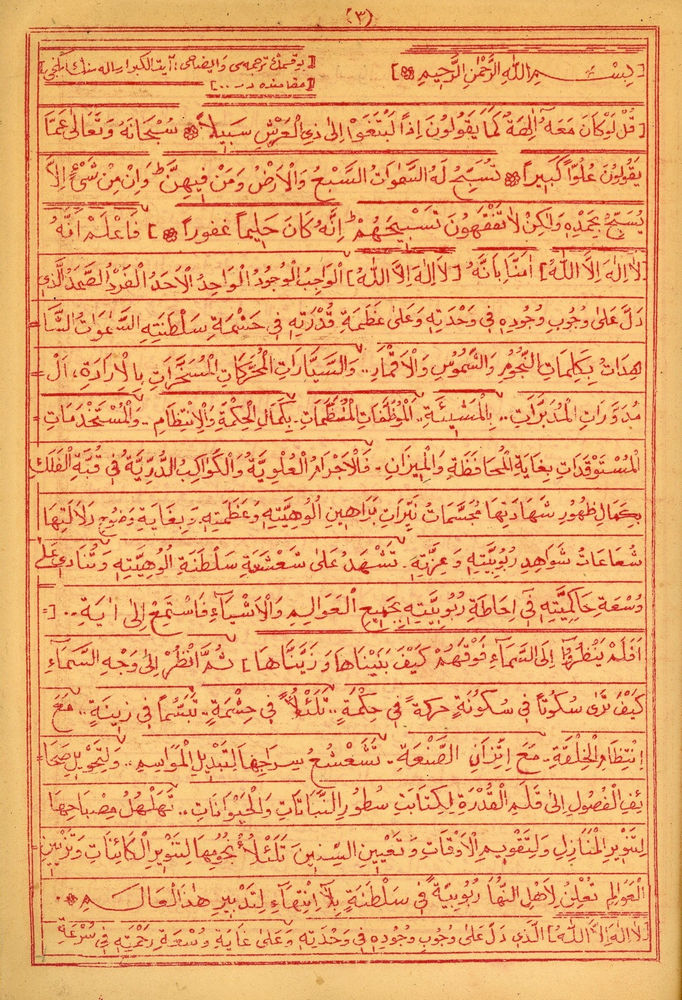 (٣)
[ بِسْمِ اللّٰهِ الرَّحْمٰنِ الرَّحِيمِ ]
[ بو قسمك ترجمه‌سى و ايضاحى؛ آية الكبرا رساله‌سنك ايكنجى
مقامنده در..]
[ قُلْ لَوْ كَانَ مَعَهُ اٰلِهَةٌ كَمَا يَقُولُونَ اِذًا لَابْتَغَوْا اِلٰى ذِي الْعَرْشِ سَبِيلاً سُبْحَانَهُ وَتَعَالٰى عَمَّا
يَقُولُونَ عُلُوًّا كَبِيرًا تُسَبِّحُ لَهُ السَّمٰوَاتُ السَّبْعُ وَالْاَرْضُ وَمَنْ فِيهِنَّ وَاِنْ مِنْ شَيْءٍ اِلاَّ
يُسَبِّحُ بِحَمْدِهِ وَلٰكِنْ لَا تَفْقَهُونَ تَسْبِيحَهُمْ اِنَّهُ كَانَ حَلِيمًا غَفُورًا ] فَاعْلَمْ اَنَّهُ
[لَا اِلٰهَ اِلاَّ اللّٰهُ] اٰمَنَّا بِاَنَّهُ [لَا اِلٰهَ اِلاَّ اللّٰهُ] اَلْوَاجِبُ الْوُجُودُ الْوَاحِدُ الْاَحَدُ الْفَرْدُ الصَّمَدُ الَّذِي
دَلَّ عَلٰى وُجُوبِ وُجُودِهِ فِي وَحْدَتِهِ وَعَلٰى عَظَمَةِ قُدْرَتِهِ فِي حَشْمَةِ سَلْطَنَتِهِ السَّمٰوَاتُ الشَّا=
هِدَاتُ بِكَلِمَاتِ النُّجُومِ وَالشُّمُوسِ وَالْاَقْمَارِ.. وَالسَّيَّارَاتِ الْمُحَرَّكَاتِ الْمُسَخَّرَاتِ بِالْاِرَادَةِ، اَلْ=
مُدَوَّرَاتِ الْمُدَبَّرَاتِ.. بِالْمَشِيئَةِ.. اَلْمُوَظَّفَاتِ الْمُنَظَّمَاتِ.. بِكَمَالِ الْحِكْمَةِ وَالْاِنْتِظَامِ.. وَالْمُسْتَخْدَمَاتِ
الْمُسْتَوْقَدَاتِ بِغَايَةِ الْمُحَافَظَةِ وَالْمِيزَانِ.. فَالْاَجْرَامُ الْعُلْوِيَّةُ وَالْكَوَاكِبُ الدُّرِّيَّةُ فِي قُبَّةِ الْفَلَكِ
بِكَمَالِ ظُهُورِ شَهَادَتِهَا مُجَسَّمَاتُ نَيِّرَاتِ بَرَاهِينِ اُلُوهِيَّتِهِ وَعَظَمَتِهِ وَبِغَايَةِ وُضُوحِ دَلَالَتِهَا
شُعَاعَاتُ شَوَاهِدِ رُبُوبِيَّتِهِ وَعِزَّتِهِ.. تَشْهَدُ عَلٰى شَعْشَعَةِ سَلْطَنَةِ اُلُوهِيَّتِهِ وَتُنَادِي عَلٰى
وُسْعَةِ حَاكِمِيَّتِهِ فِي اِحَاطَةِ رُبُوبِيَّتِهِ بِجَمِيعِ الْعَوَالِمِ وَالْاَشْيَاءِ فَاسْتَمِعْ اِلٰى اٰيَةِ.. [=
اَفَلَمْ يَنْظُرُوا اِلَى السَّمَاءِ فَوْقَهُمْ كَيْفَ بَنَيْنَاهَا وَزَيَّنَّاهَا ] ثُمَّ انْظُرْ اِلٰى وَجْهِ السَّمَاءِ
كَيْفَ تَرٰى سُكُوتًا فِي سُكُونَةٍ حَرَكَةً فِي حِكْمَةٍ.. تَلَئْلُأً فِي حِشْمَةٍ.. تَبَسُّمًا فِي زِينَةٍ.. مَعَ
اِنْتِظَامِ الْخِلْقَةِ.. مَعَ اِتِّزَانِ الصَّنْعَةِ.. تَشَعْشُعُ سِرَاجِهَا لِتَبْدِيلِ الْمَوَاسِمِ.. وَلِتَحْوِيلِ صَحَا=
ئِفِ الْفُصُولِ اِلٰى قَلَمِ الْقُدْرَةِ لِكِتَابَتِ سُطُورِ النَّبَاتَاتِ وَالْحَيْوَانَاتِ.. تَهَلْهُلُ مِصْبَاحِهَا
لِتَنْوِيرِ الْمَنَازِلِ وَلِتَقْوِيمِ الْاَوْقَاتِ وَتَعْيِينِ السِّنِينَ تَلَئْلُأُ نُجُومِهَا لِتَنْوِيرِ الْكَائِنَاتِ وَتَزْيِينِ
الْعَوَالِمِ تُعْلِنُ لِاَهْلِ النُّهَا رُبُوبِيَّةً فِي سَلْطَنَةٍ بِلَا اِنْتِهَاءٍ لِتَدْبِيرِ هٰذَا الْعَالَمِ..
[لَا اِلٰهَ اِلاَّ اللّٰهُ] الَّذِي دَلَّ عَلٰى وُجُوبِ وُجُودِهِ فِي وَحْدَتِهِ وَعَلٰى غَايَةِ وُسْعَةِ رَحْمَتِهِ فِي سُرْعَةِ